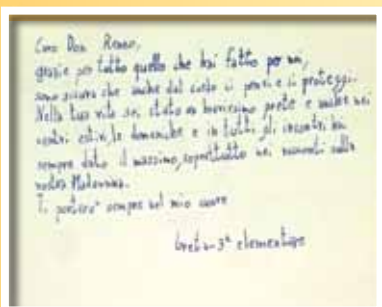 Caro Don Renzo,
grazie per tutto quello che hai fatto per noi,
sono sicura che anche dal cielo ci pensi e ci proteggi.
Nella tua vita sei stato un bravissimo prete e anche nei
centri estivi, le domeniche e in tutti gli incontri hai
sempre dato il massimo, soprattutto nei racconti sulla
nostra Madonnina.
Ti porterò sempre nel mio cuore
Greta - 3ª elementare